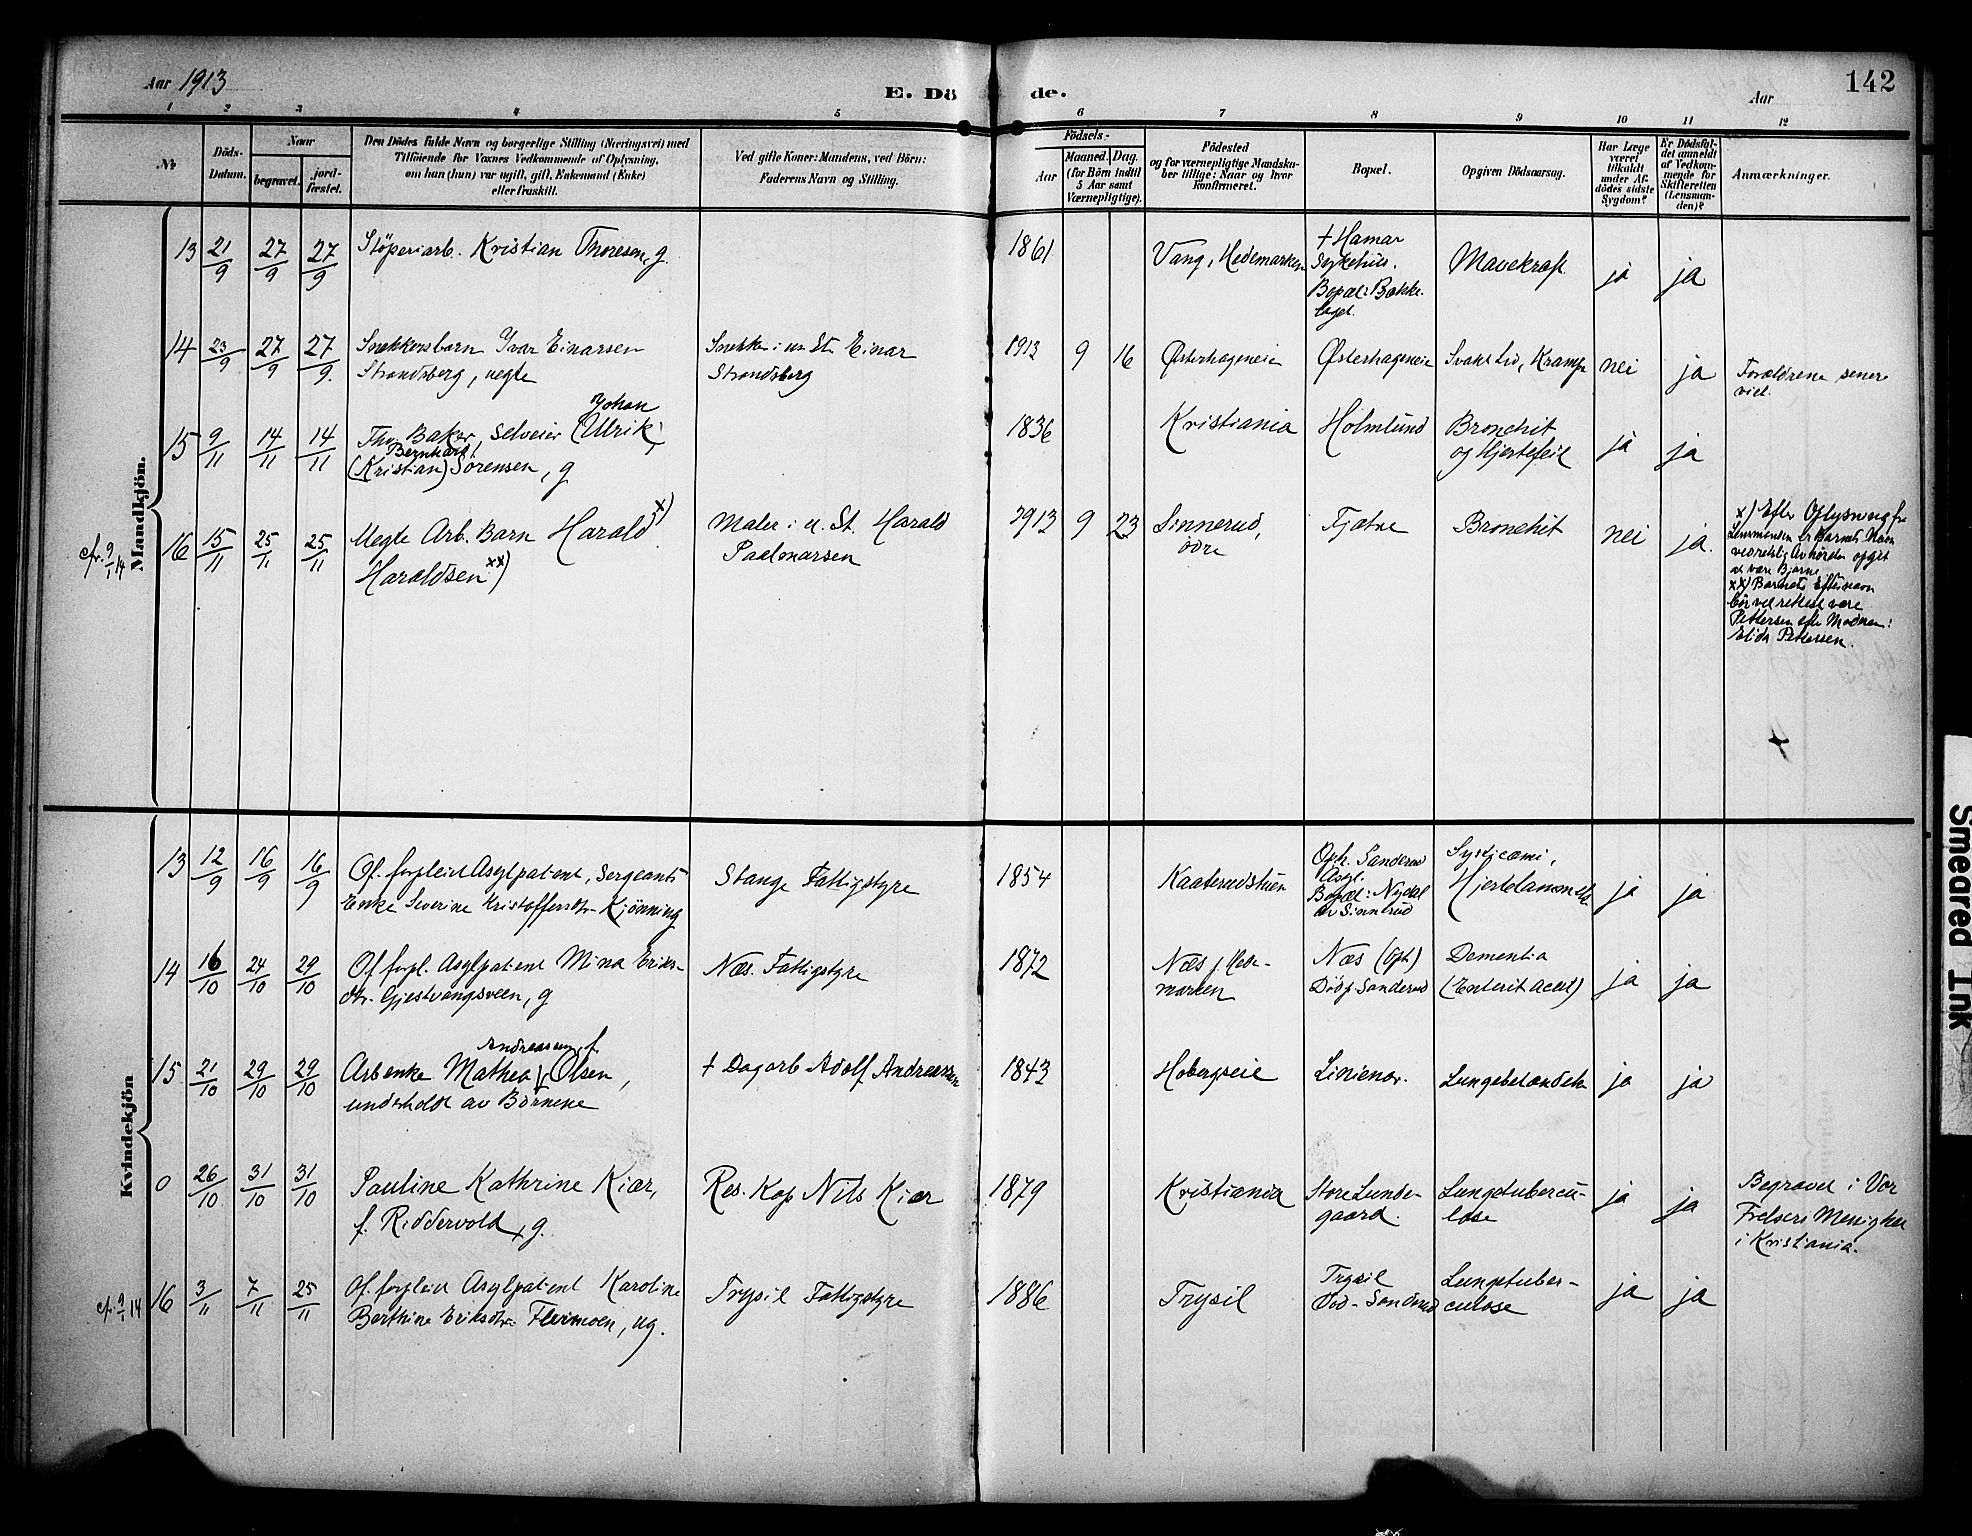 Aar 1913
E. Dö de.
Aar
142
1 2 3 4 5 6 7 8 9 10 11 12
No
Döds-
Datum.
Naar
begravet.
jord-
fæstet.
Den Dödes fulde Navn og borgerlige Stilling (Næringsvei) med
Tilföiende for Voxnes Vedkommende af Oplysning,
om han (hun) var ugift, gift, Enkemand (Enke)
eller fraskilt.
Ved gifte Koner: Mandens, ved Börn:
Faderens Navn og Stilling.
Födsels-
Aar
Maaned. Dag.
(for Börn indtil
5 Aar samt
Værnepligtige).
Födested
og for værnepligtige Mandska-
ber tillige: Naar og hvor
konfirmeret.
Bopæl.
Opgiven Dödsaarsag.
Har Læge
været
tilkaldt
under Af-
dödes sidste
Sygdom?
Er Dödsfal-
det anmeldt
af Vedkom-
mende for
Skifteretten
(Lensman-
den)?
Anmærkninger.
Mandkjön.
13 21/9 27/9 27/9 Stöperiarb. Kristian Thoresen, g. 1861 Vang, Hedemarken
† Hamar
Sykehus.
Bopæl: Bække-
laget.
Mavekræft ja ja
14 23/9 27/9 27/9. Snekkersbarn Ivar Einarsen
Strandsberg, uegte
Snekker i u. St. Einar
Strandsberg
1913 9 16 Østerhageneie Østerhageneie Svakt Liv, Krampe nei ja
Forældrene senere
viet.
15 9/11 14/11 14/11
Johan
Thv. Baker, Selveier (Ulrik,
Bernhard,
(Kristian) Sörensen, g
1836 Kristiania Holmlund Bronchit
og Hjertefeil
ja ja
cfr. 9/1 14
16 15/11 25/11 25/11 Uegte Arb. Barn Harald x)
Haraldsen xx)
Maler i u. St. Harald
Paulonarsen
1913 9 23 Sinnerud,
övre
Tjötre Bronchit nei ja.
x) Efter Oplysning fra
Lensmanden er Barnets Navn
ved retslig Avhörelse opgit
at være Bjarne
xx) Barnets Efternavn
bör vel rettest være
Pettersen efter Moderen:
Elida Pettersen.
Kvindekjön
13 12/9 16/9 16/9 Of. forpleiet Asylpatient, Sergeants
Enke Severine Kristoffersdtr. Kjönning
Stange Fattigstyre
1854 Kaaterudstuen
Oph. Sanderud
Asyl.
Bopæl: Nydal
av Sinnerud
Hjertelammelse ja ja
14 16/10 24/10 29/10 Of. forpl. Asylpatient Mina Eriks-
dtr. Gjestvangsveen, g
Næs. Fattigstyre
1872 Næs, Hede-
marken
Næs (Oph)
Död, Sanderud
Dementia
(Enterit acut)
ja ja
15 21/10 29/10 29/10
Andreassen, f.
Arbenke Mathea Olsen,
underholdt av Börnene
† Dagarb Adolf Andreassen
1843 Hobergseie Linienor. Lungebetændelse ja ja
0 26/10 31/10 31/10 Pauline Kathrine Kiær,
f. Riddervold, g.
Res. Kap Nils Kiær
1879 Kristiania Store Lunde-
gaard.
Lungetubercu-
lose
ja ja
Begravet i Vor
Frelsers Menighet
i Kristiania.
cfr. 9/1 14
16 3/11 7/11 25/11 Of. forpleiet Asylpatient Karoline
Berthine Eriksdtr. Flermoen, ug.
Trysil Fattigstyre
1886 Trysil
Trysil
Död- Sanderud
Lungetuber-
culose
ja ja
Smeared Ink